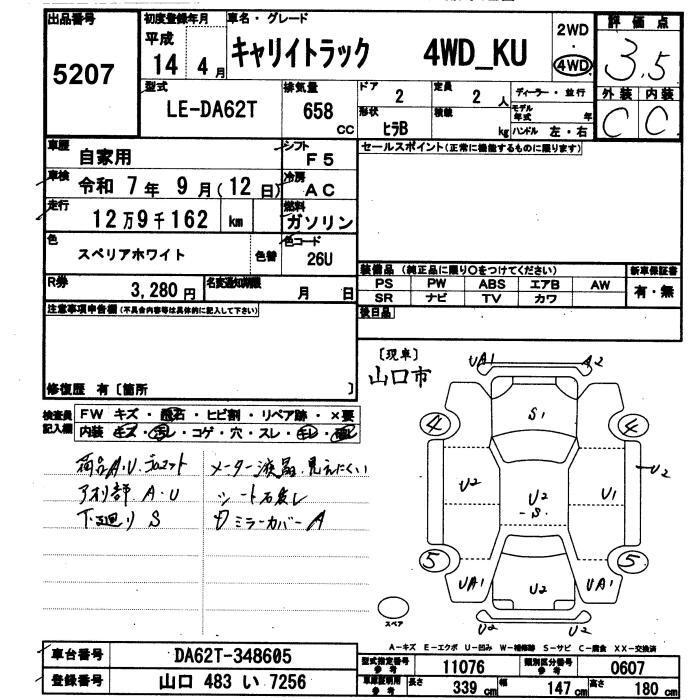 出品番号
5207
初度登録年月
平成
14年 4月
車名・グレード
キャリイトラック 4WD_KU
2WD
・
4WD
評価点
3.5
外装 内装
C C
型式
LE-DA62T
排気量
658 CC
ドア
2
定員
2人
ディーラー・並行
形状
ヒラB
積載
kg
モデル年式 年
ハンドル 左・右
車歴
自家用
シフト
F5
セールスポイント(正常に機能するものに限ります)
車検
令和 7年 9月(12日)
冷房
AC
走行
12万9千162 km
燃料
ガソリン
色
スペリアホワイト
色替
色コード
26U
R券
3,280円
名変通知期限
月 日
装備品 (純正品に限り○をつけてください)
新車保証書
PS PW ABS エアB AW
SR ナビ TV カワ
有・無
後日品
注意事項申告欄(不具合内容等は具体的に記入して下さい)
修復歴 有〔箇所 〕
検査員記入欄
FW キズ・飛石・ヒビ割・リペア跡・×要
内装 キズ・汚レ・コゲ・穴・スレ・キレ・破レ
荷台A.U.
メーター液晶.見えにくい
アオリ部 A.U
シート
下廻り S
ミラーカバーA
〔現車〕
山口市
UA1
A2
S1
4
4
U2
U2
S
U1
U2
5
5
UA1
U2
UA1
U2
U2
スペア
A-キズ E-エクボ U-凹み W-補修跡 S-サビ C-腐食 XX-交換済
車台番号
DA62T-348605
登録番号
山口 483 い 7256
型式指定番号
参考
11076
類別区分番号
参考
0607
車庫証明用
参考
長さ 339cm 幅 147cm 高さ 180cm